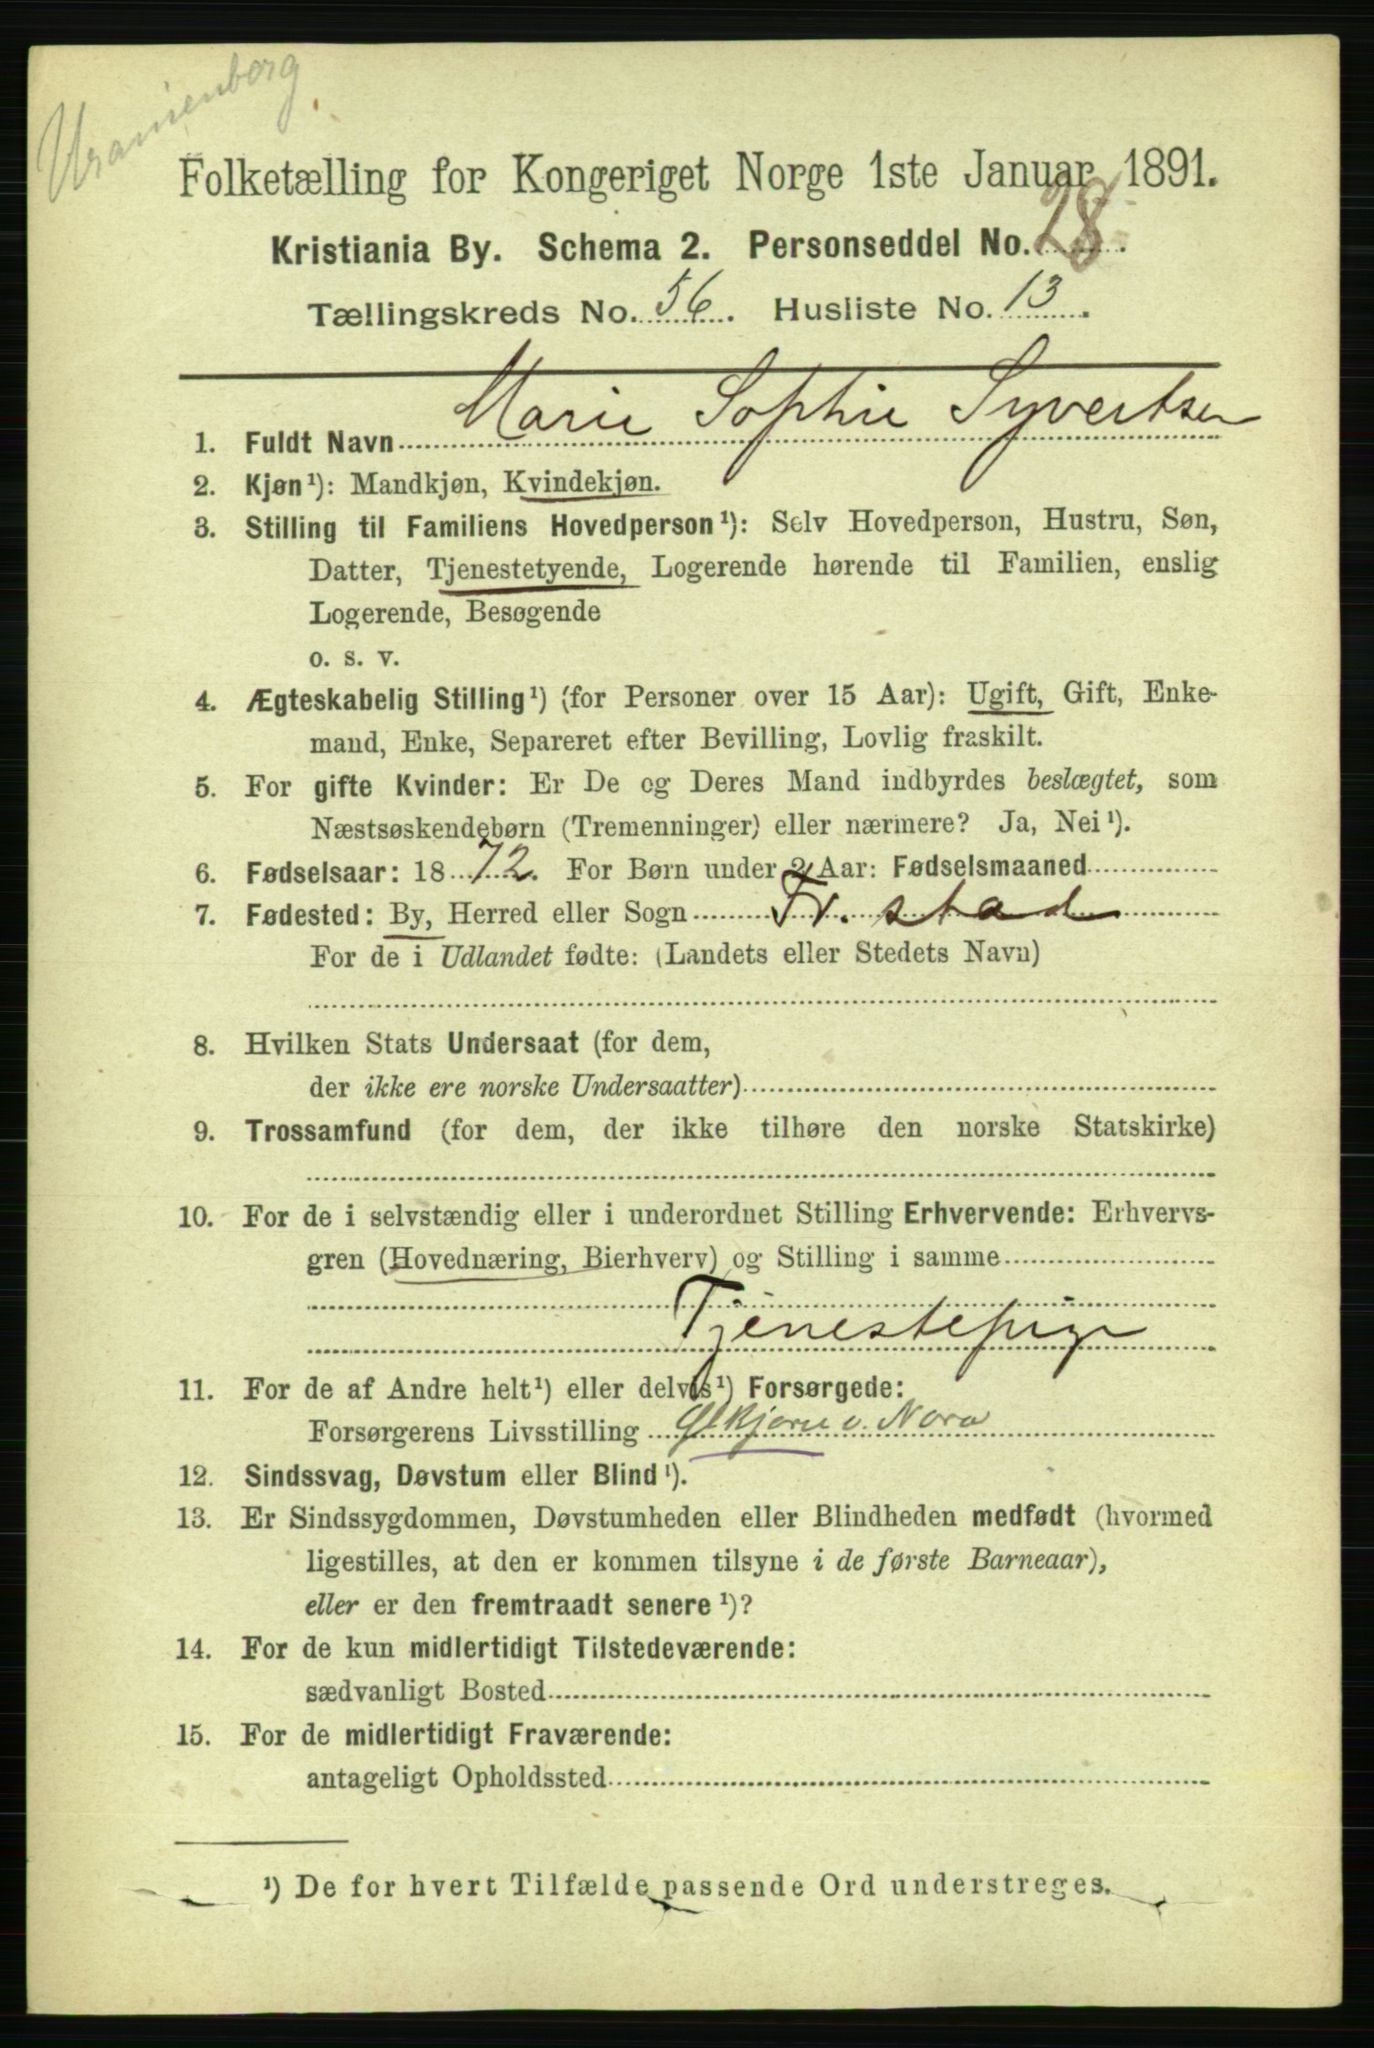 Uranienborg
Folketælling for Kongeriget Norge 1ste Januar 1891.
Kristiania By. Schema 2. Personseddel No. 28.
Tællingskreds No. 56. Husliste No. 13.
1. Fuldt Navn Marie Sophie Syvertsen
2. Kjøn¹): Mandkjøn, Kvindekjøn.
3. Stilling til Familiens Hovedperson¹): Selv Hovedperson, Hustru, Søn,
Datter, Tjenestetyende, Logerende hørende til Familien, enslig
Logerende, Besøgende
o. s. v.
4. Ægteskabelig Stilling¹) (for Personer over 15 Aar): Ugift, Gift, Enke-
mand, Enke, Separeret efter Bevilling, Lovlig fraskilt.
5. For gifte Kvinder: Er De og Deres Mand indbyrdes beslægtet, som
Næstsøskendebørn (Tremenninger) eller nærmere? Ja, Nei¹).
6. Fødselsaar: 1872. For Børn under 2 Aar: Fødselsmaaned
7. Fødested: By, Herred eller Sogn Fr. stad
For de i Udlandet fødte: (Landets eller Stedets Navn)
8. Hvilken Stats Undersaat (for dem,
der ikke ere norske Undersaatter)
9. Trossamfund (for dem, der ikke tilhøre den norske Statskirke)
10. For de i selvstændig eller i underordnet Stilling Erhvervende: Erhvervs-
gren (Hovednæring, Bierhverv) og Stilling i samme
Tjenestepige
11. For de af Andre helt¹) eller delvis¹) Forsørgede:
Forsørgerens Livsstilling
12. Sindssvag, Døvstum eller Blind¹).
13. Er Sindssygdommen, Døvstumheden eller Blindheden medfødt (hvormed
ligestilles, at den er kommen tilsyne i de første Barneaar),
eller er den fremtraadt senere¹)?
14. For de kun midlertidigt Tilstedeværende:
sædvanligt Bosted
15. For de midlertidigt Fraværende:
antageligt Opholdssted
¹) De for hvert Tilfælde passende Ord understreges.